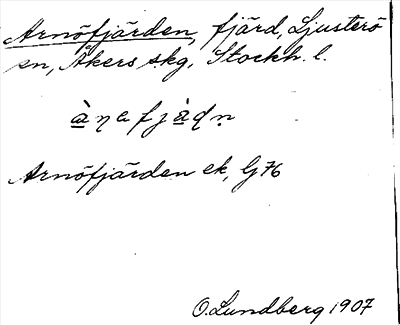 Arnöfjärden, fjärd, Ljusterö
sn, Åkers skg, Stockh. l.
à̱ŋafjà̱ɖn̥
Arnöfjärden ek, G 76
O. Lundberg 1907